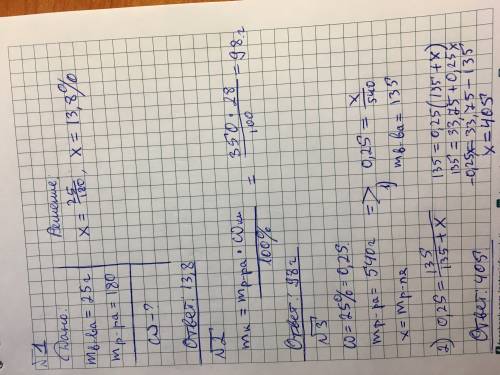 №1
Дано:
mв-ва = 25 г
mр-ра = 180
ω = ?
Решение
x = 25/180, x = 13,8%
Ответ: 13,8
№2
mк = mр-ра · ωк / 100% = 350 · 28 / 100 = 98 г
Ответ: 98 г
№3
ω = 25% = 0,25
mр-ра = 540 г => 0,25 = x/540
x = mр-ра 1) mв-ва = 135
2) 0,25 = 135/135 + x
135 = 0,25(135 + x)
135 = 33,75 + 0,25x
-0,25x = 33,75 - 135
x = 405
Ответ: 405